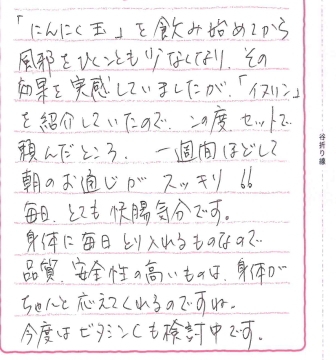 「にんにく玉」を飲み始めてから
風邪をひくことも少なくなり、その
効果を実感していましたが、「イヌリン」
を紹介していたので、この度セットで
頼んだところ、一週間ほどして
朝のお通じがスッキリ!!
毎日、とても快腸気分です。
身体に毎日とり入れるものなので
品質、安全性の高いものは、身体が
ちゃんと応えてくれるのですね。
今度はビタミンCも検討中です。
谷折り線